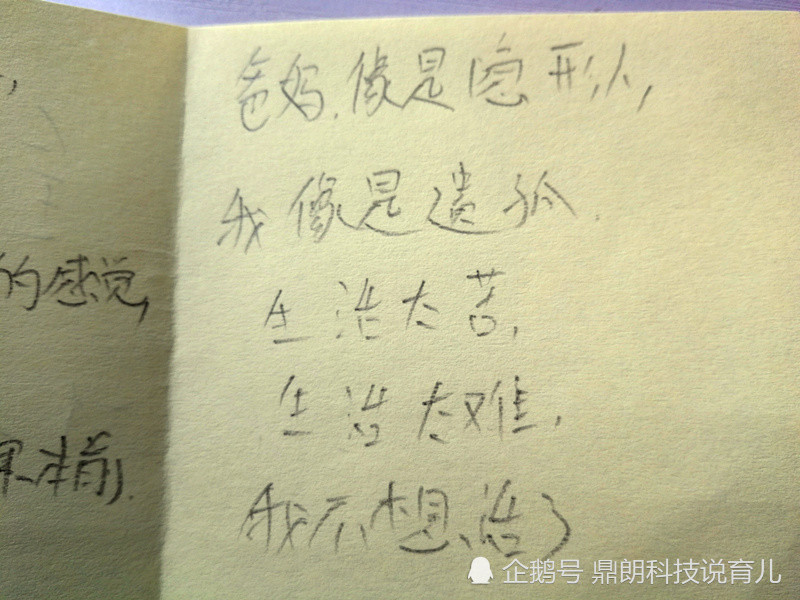 爸妈.像是隐形人,
我像是遗孤.
的感觉,
生活太苦,
生活太难,
果本前.
我不想活了
企鹅号 鼎朗科技说育儿